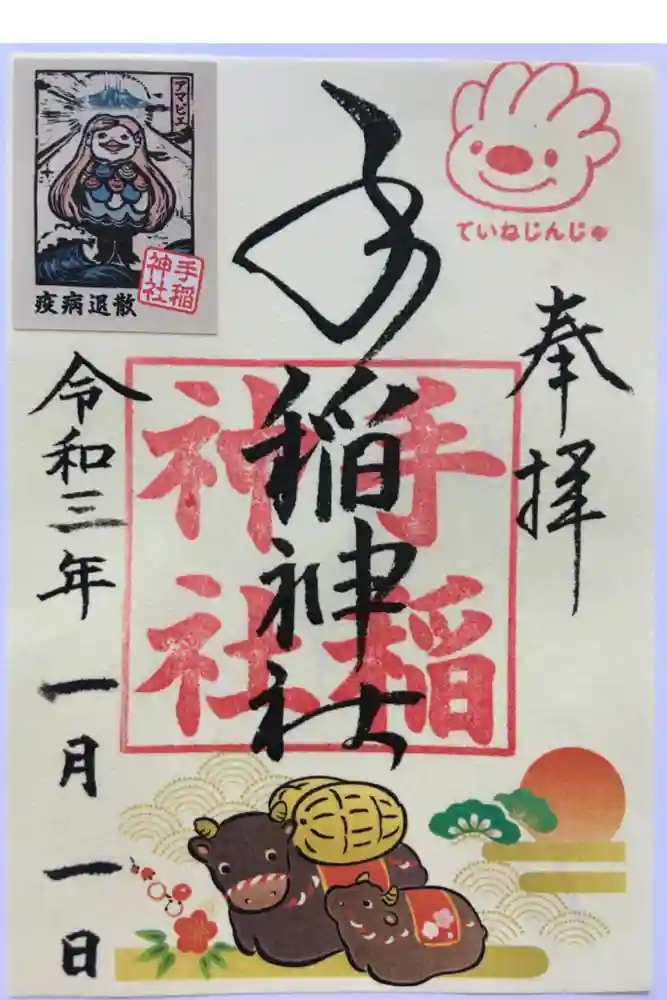 アマビエ
手稲
神社
疫病退散
ていねじんじゃ
奉拝
手稲神社
手稲
神社
令和三年一月一日